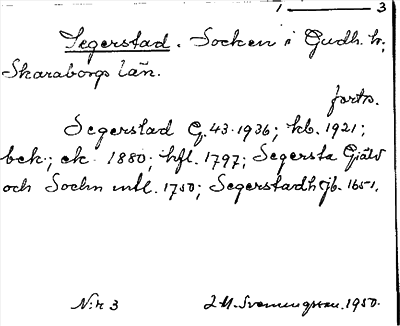 1 ——— 3
Segerstad. Socken i Gudh. h;
Skaraborgs län.
forts.
Segerstad G. 43. 1936; kb. 1921;
bek; ek. 1880; hfl. 1797; Segersta Gjäld
och Sockn mtl. 1750; Segerstadh jb. 1651.
N:r 3
I. M. Svenningsson. 1950.